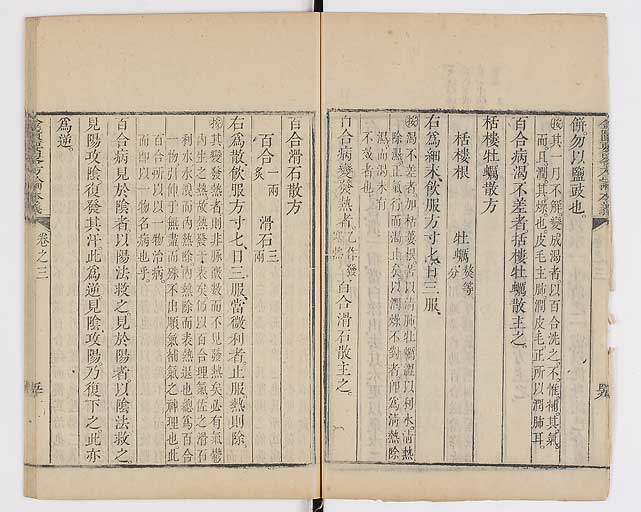 餅勿以鹽豉也
按其一月不解變成渴者以百合洗之不惟補其氣
而且潤其燥也皮毛主肺潤皮毛正所以潤肺耳
百合病渴不差者括樓牡蠣散主之
栝樓牡蠣散方
栝樓根 牡蠣熬等分
右為細末飲服方寸匕日三服
按渴不差者加枯蔞根者以清肺牡蠣澀以利水清熱
除濕正氣行而渴止矣以潤燥不對者即為清熱除
濕而渴未有
不效者也
百合病變發熱者一作發寒熱百合滑石散主之
百合滑石散方
百合一兩炙 滑石三兩
右為散飲服方寸匕日三服當微利者止服熱則除
按其變發熱者則非脈微數而不見發熱矣必有氣鬱
內生之熱故熱發于表矣仍以百合理氣佐之滑石
利水水浪而內熱除內熱除而表熱退也總為百合
一物引伸于無盡而殊不出順氣補氣之神理也此
百合所以以一物治病
而即以一物名病也乎
百合病見於陰者以陽法救之見於陽者以陰法救之
見陽攻陰復發其汗此為逆見陰攻陽乃復下之此亦
為逆
卷之三